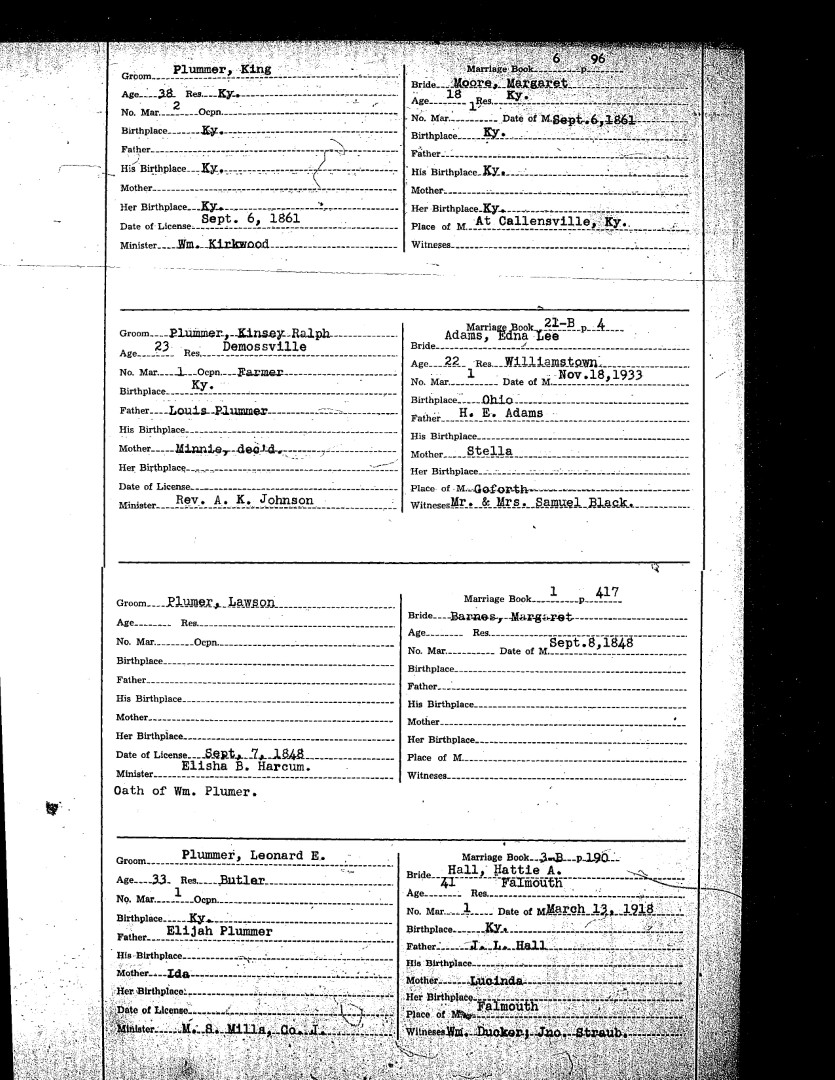 Groom Plummer, King
Age 38 Res. Ky.
No. Mar. 2 Ocpn.
Birthplace Ky.
Father
His Birthplace Ky.
Mother
Her Birthplace Ky.
Date of License Sept. 6, 1861
Minister Wm. Kirkwood
Marriage Book 6 p. 96
Bride Moore, Margaret
Age 18 Res. Ky.
No. Mar. 1 Date of M. Sept.6,1861
Birthplace Ky.
Father
His Birthplace Ky.
Mother
Her Birthplace Ky.
Place of M. At Callensville, Ky.
Witneses
Groom Plummer, Kinsey Ralph
Age 23 Res. Demossville
No. Mar. 1 Ocpn. Farmer
Birthplace Ky.
Father Louis Plummer
His Birthplace
Mother Minnie, dec'd.
Her Birthplace
Date of License
Minister Rev. A. K. Johnson
Marriage Book 21-B p. 4
Bride Adams, Edna Lee
Age 22 Res. Williamstown
No. Mar. 1 Date of M. Nov.18,1933
Birthplace Ohio
Father H. E. Adams
His Birthplace
Mother Stella
Her Birthplace
Place of M. Goforth
Witneses Mr. & Mrs. Samuel Black.
Groom Plumer, Lawson
Age Res.
No. Mar. Ocpn.
Birthplace
Father
His Birthplace
Mother
Her Birthplace
Date of License Sept. 7, 1848
Minister Elisha B. Harcum.
Oath of Wm. Plumer.
Marriage Book 1 p. 417
Bride Barnes, Margaret
Age Res.
No. Mar. Date of M. Sept.8,1848
Birthplace
Father
His Birthplace
Mother
Her Birthplace
Place of M.
Witneses
Groom Plummer, Leonard E.
Age 33 Res. Butler
No. Mar. 1 Ocpn.
Birthplace Ky.
Father Elijah Plummer
His Birthplace
Mother Ida
Her Birthplace
Date of License
Minister M. S. Mills, Co. J.
Marriage Book 3-B p. 190
Bride Hall, Hattie A.
Age 41 Res. Falmouth
No. Mar. 1 Date of M. March 13, 1918
Birthplace Ky.
Father J. L. Hall
His Birthplace
Mother Lucinda
Her Birthplace
Place of M. Falmouth
Witneses Wm. Ducker; Jno. Straub.